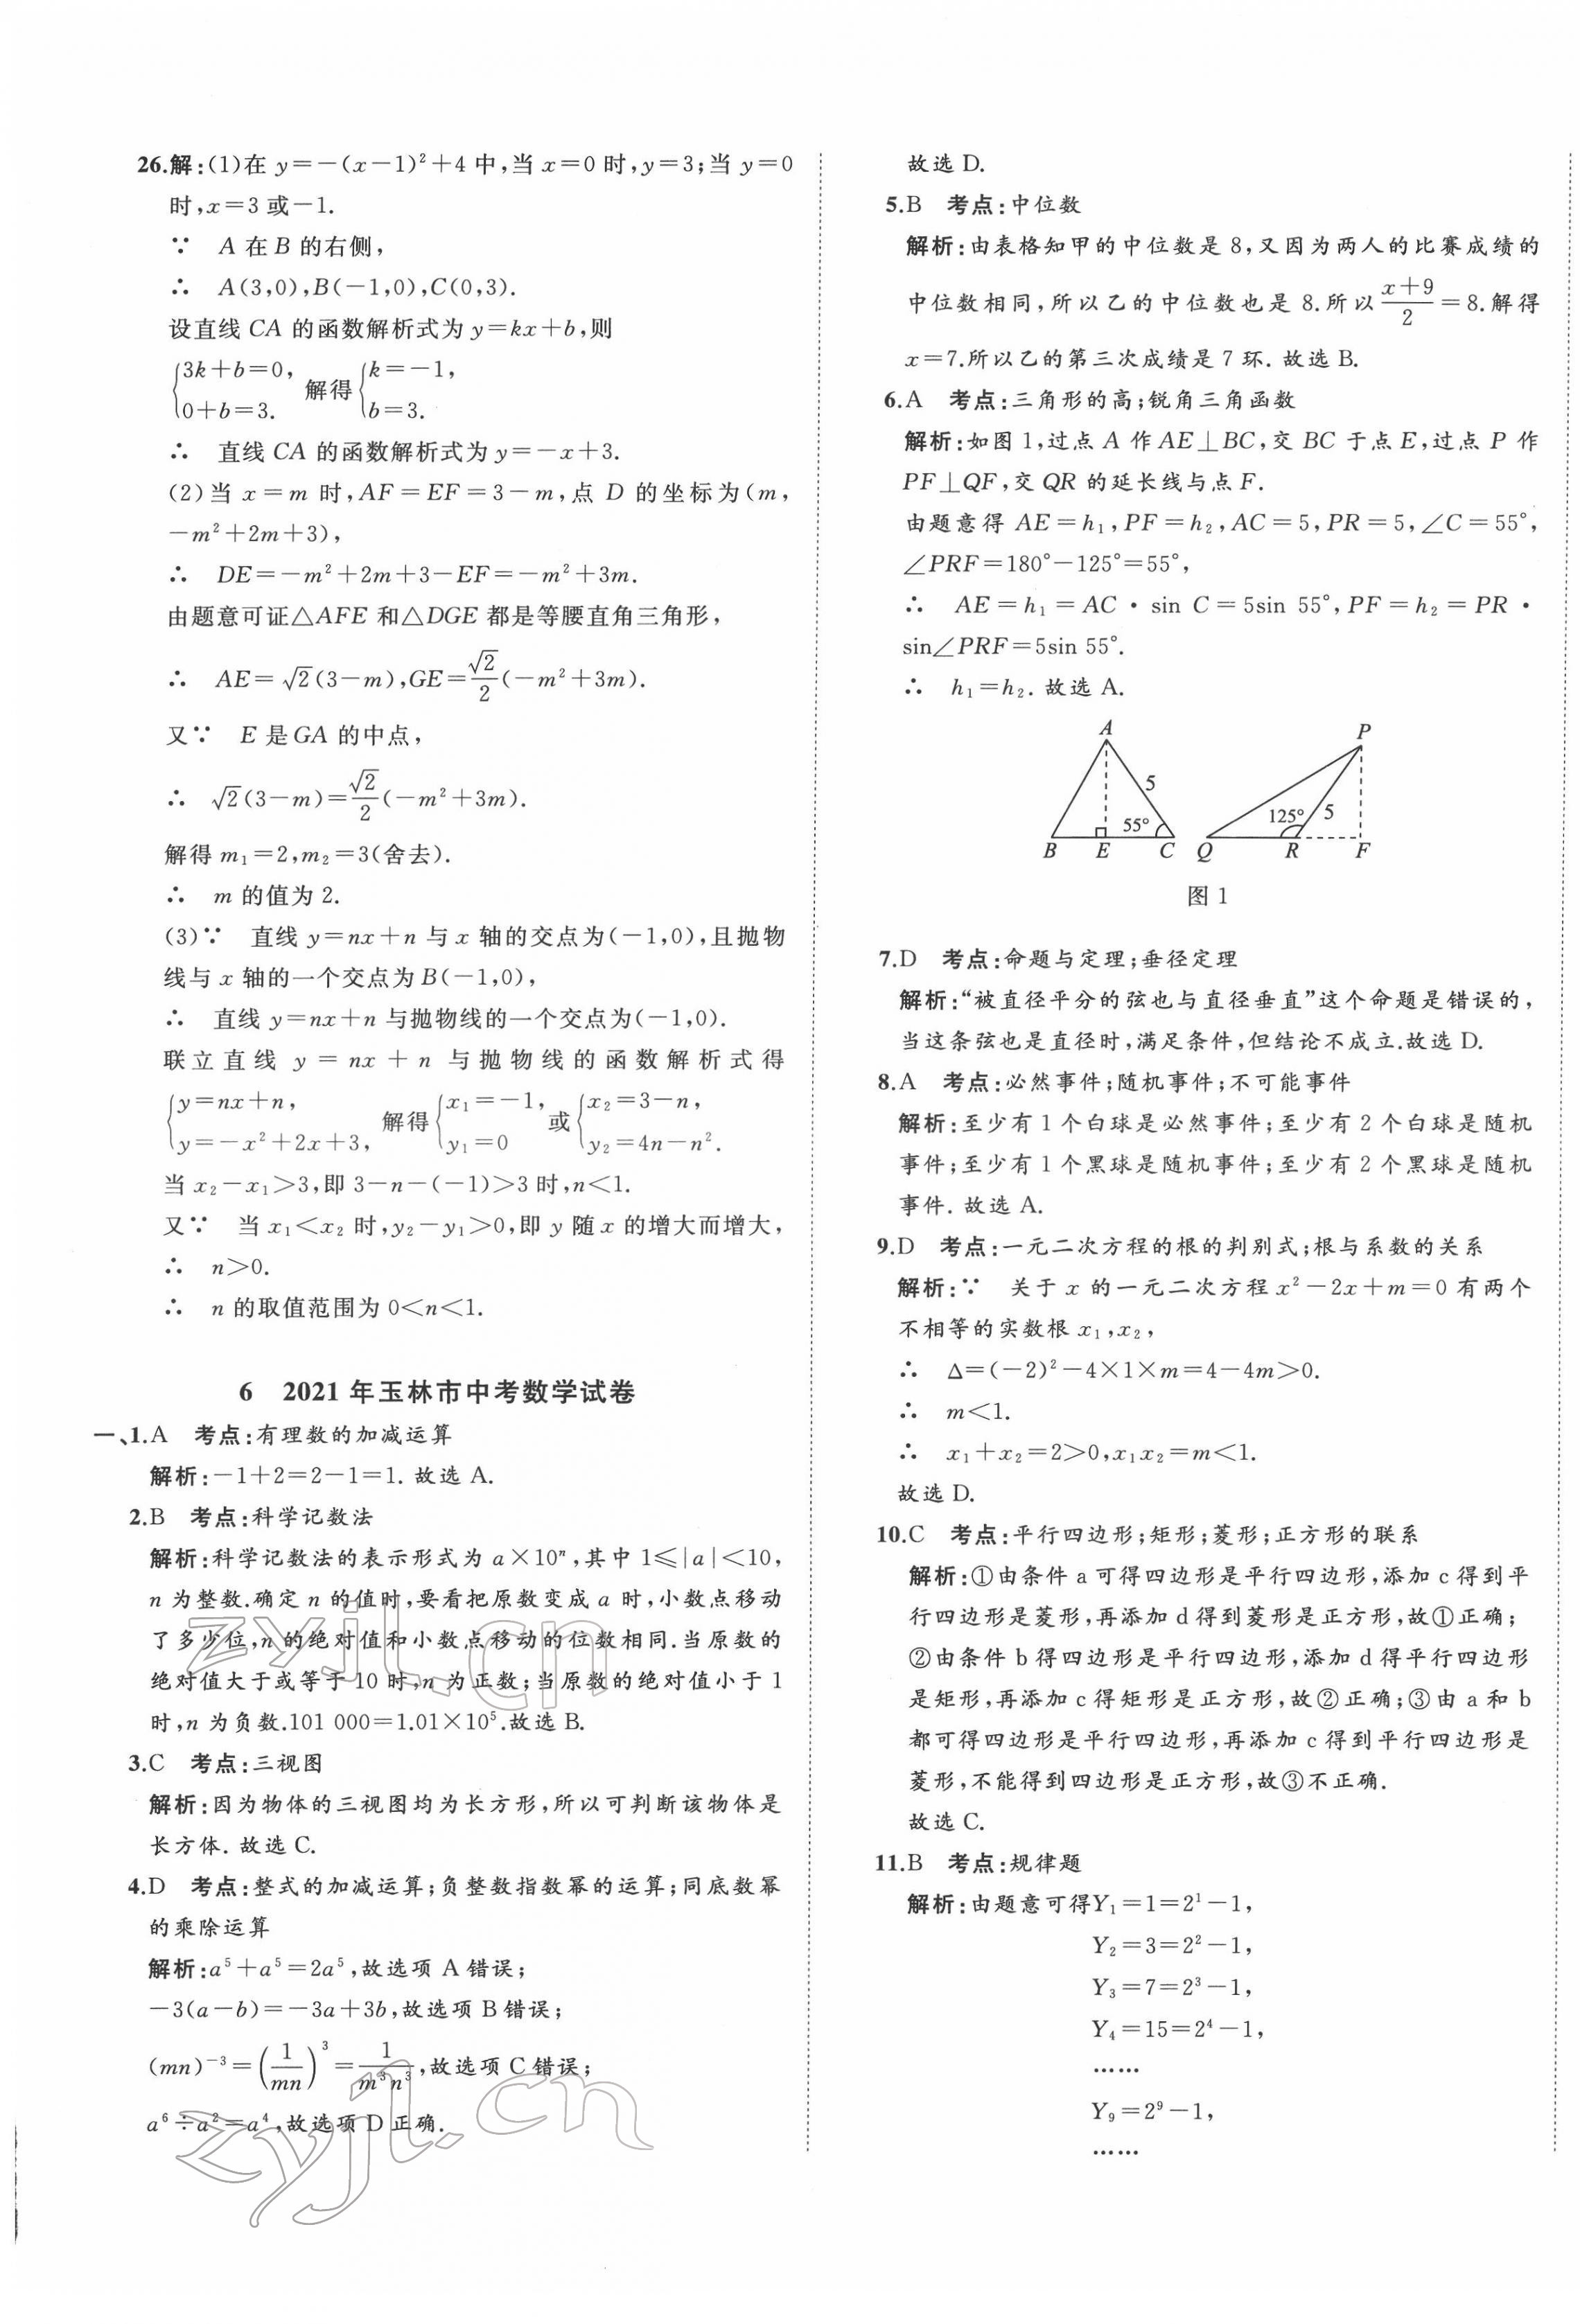 26.解:(1)在 y=-(x-1)²+4 中,当 x=0 时,y=3;当 y=0
时,x=3 或-1.
∵ A 在 B 的右侧,
∴ A(3,0),B(-1,0),C(0,3).
设直线 CA 的函数解析式为 y=kx+b,则
{3k+b=0, 0+b=3. 解得 {k=-1, b=3.
∴ 直线 CA 的函数解析式为 y=-x+3.
(2)当 x=m 时,AF=EF=3-m,点 D 的坐标为(m,
-m²+2m+3),
∴ DE=-m²+2m+3-EF=-m²+3m.
由题意可证△AFE 和△DGE 都是等腰直角三角形,
∴ AE=√2(3-m),GE=√2/2(-m²+3m).
又∵ E 是 GA 的中点,
∴ √2(3-m)=√2/2(-m²+3m).
解得 m₁=2,m₂=3(舍去).
∴ m 的值为 2.
(3)∵ 直线 y=nx+n 与 x 轴的交点为(-1,0),且抛物
线与 x 轴的一个交点为 B(-1,0),
∴ 直线 y=nx+n 与抛物线的一个交点为(-1,0).
联立直线 y=nx+n 与抛物线的函数解析式得
{y=nx+n, y=-x²+2x+3, 解得 {x₁=-1, y₁=0 或 {x₂=3-n, y₂=4n-n².
当 x₂-x₁>3,即 3-n-(-1)>3 时,n<1.
又∵ 当 x₁<x₂ 时,y₂-y₁>0,即 y 随 x 的增大而增大,
∴ n>0.
∴ n 的取值范围为 0<n<1.
6 2021 年玉林市中考数学试卷
一、1.A 考点:有理数的加减运算
解析:-1+2=2-1=1. 故选 A.
2.B 考点:科学记数法
解析:科学记数法的表示形式为 a×10ⁿ,其中 1≤|a|<10,
n 为整数.确定 n 的值时,要看把原数变成 a 时,小数点移动
了多少位,n 的绝对值和小数点移动的位数相同.当原数的
绝对值大于或等于 10 时,n 为正数;当原数的绝对值小于 1
时,n 为负数.101 000=1.01×10⁵.故选 B.
3.C 考点:三视图
解析:因为物体的三视图均为长方形,所以可判断该物体是
长方体. 故选 C.
4.D 考点:整式的加减运算;负整数指数幂的运算;同底数幂
的乘除运算
解析:a⁵+a⁵=2a⁵,故选项 A 错误;
-3(a-b)=-3a+3b,故选项 B 错误;
(mn)⁻³=(1/mn)³=1/m³n³,故选项 C 错误;
a⁶÷a²=a⁴,故选项 D 正确.
故选 D.
5.B 考点:中位数
解析:由表格知甲的中位数是 8,又因为两人的比赛成绩的
中位数相同,所以乙的中位数也是 8.所以 (x+9)/2=8.解得
x=7.所以乙的第三次成绩是 7 环. 故选 B.
6.A 考点:三角形的高;锐角三角函数
解析:如图 1,过点 A 作 AE⊥BC,交 BC 于点 E,过点 P 作
PF⊥QF,交 QR 的延长线与点 F.
由题意得 AE=h₁,PF=h₂,AC=5,PR=5,∠C=55°,
∠PRF=180°-125°=55°,
∴ AE=h₁=AC·sin C=5sin 55°,PF=h₂=PR·
sin∠PRF=5sin 55°.
∴ h₁=h₂. 故选 A.
A P
5 55° 125° 5
B E C Q R F
图 1
7.D 考点:命题与定理;垂径定理
解析:“被直径平分的弦也与直径垂直”这个命题是错误的,
当这条弦也是直径时,满足条件,但结论不成立.故选 D.
8.A 考点:必然事件;随机事件;不可能事件
解析:至少有 1 个白球是必然事件;至少有 2 个白球是随机
事件;至少有 1 个黑球是随机事件;至少有 2 个黑球是随机
事件. 故选 A.
9.D 考点:一元二次方程的根的判别式;根与系数的关系
解析:∵ 关于 x 的一元二次方程 x²-2x+m=0 有两个
不相等的实数根 x₁,x₂,
∴ Δ=(-2)²-4×1×m=4-4m>0.
∴ m<1.
∴ x₁+x₂=2>0,x₁x₂=m<1.
故选 D.
10.C 考点:平行四边形;矩形;菱形;正方形的联系
解析:①由条件 a 可得四边形是平行四边形,添加 c 得到平
行四边形是菱形,再添加 d 得到菱形是正方形,故①正确;
②由条件 b 得四边形是平行四边形,添加 d 得平行四边形
是矩形,再添加 c 得矩形是正方形,故②正确;③由 a 和 b
都可得四边形是平行四边形,再添加 c 得到平行四边形是
菱形,不能得到四边形是正方形,故③不正确.
故选 C.
11.B 考点:规律题
解析:由题意可得 Y₁=1=2¹-1,
Y₂=3=2²-1,
Y₃=7=2³-1,
Y₄=15=2⁴-1,
……
Y₉=2⁹-1,
……
zyjl.cn
zyjl.cn